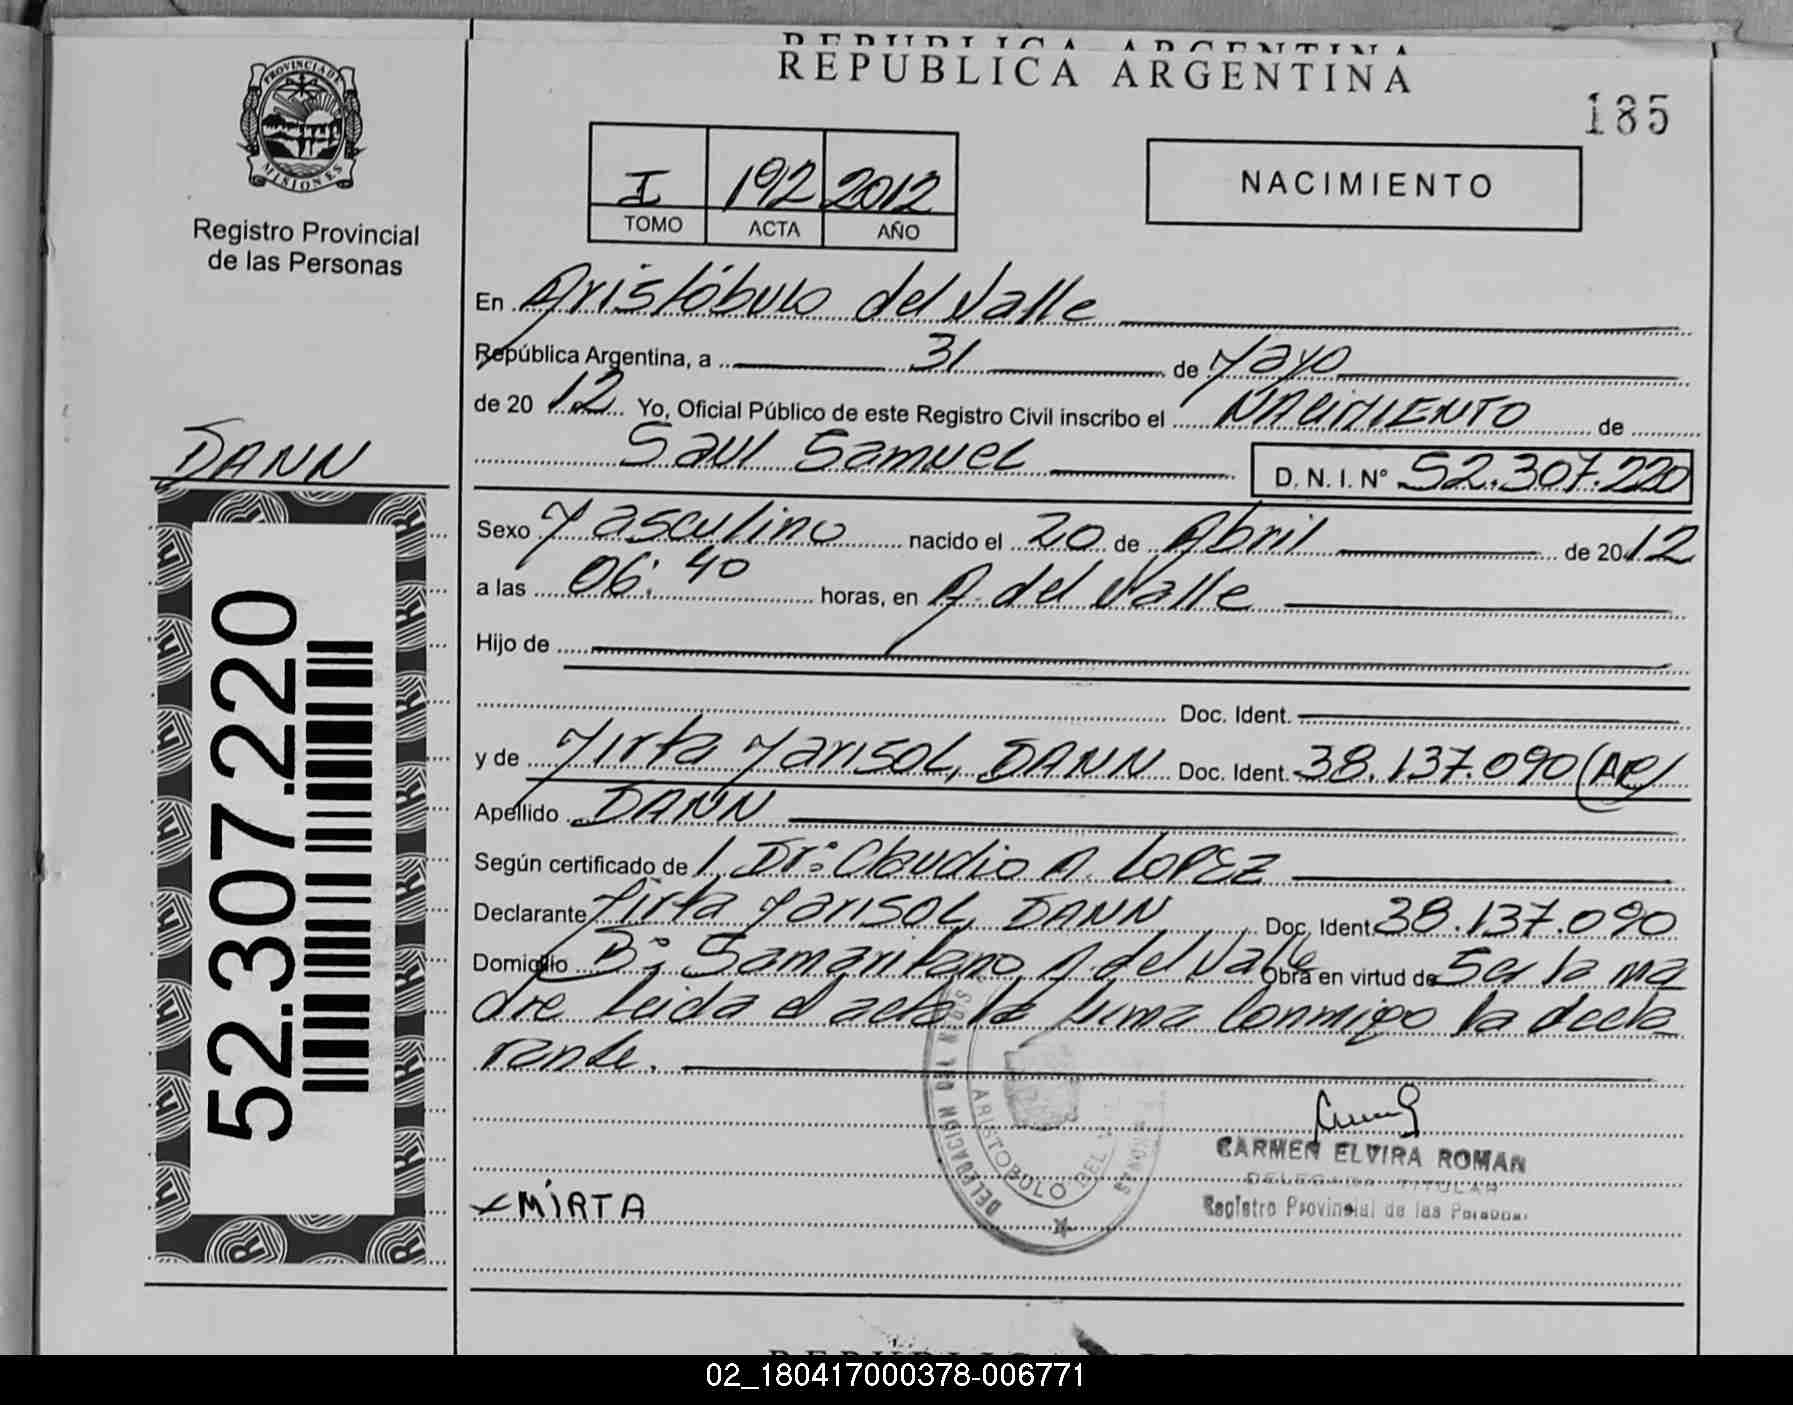 REPUBLICA ARGENTINA
REPUBLICA ARGENTINA
185
PROVINCIA DE MISIONES
Registro Provincial
de las Personas
I 192 2012
TOMO ACTA AÑO
NACIMIENTO
En Aristóbulo del Valle
República Argentina, a 31 de Mayo
de 2012 Yo, Oficial Público de este Registro Civil inscribo el NACIMIENTO de
Saul Samuel D. N. I. Nº 52.307.220
DANN
52.307.220
Sexo Masculino nacido el 20 de Abril de 2012
a las 06:40 horas, en A. del Valle
Hijo de
Doc. Ident.
y de Mirta Marisol, DANN Doc. Ident. 38.137.090 (AR)
Apellido DANN
Según certificado de 1. Dr: Claudio A. LOPEZ
Declarante Mirta Marisol, DANN Doc. Ident. 38.137.090
Domicilio Bº; Samaritano A. del Valle Obra en virtud de Ser la ma
dre Leida el acta la firma conmigo la decla
rante.
DELEGACION DEL
ARISTOBULO DEL
MISIONES
CARMEN ELVIRA ROMAN
DELEGADA TITULAR
Registro Provincial de las Personas
x MIRTA
02_180417000378-006771